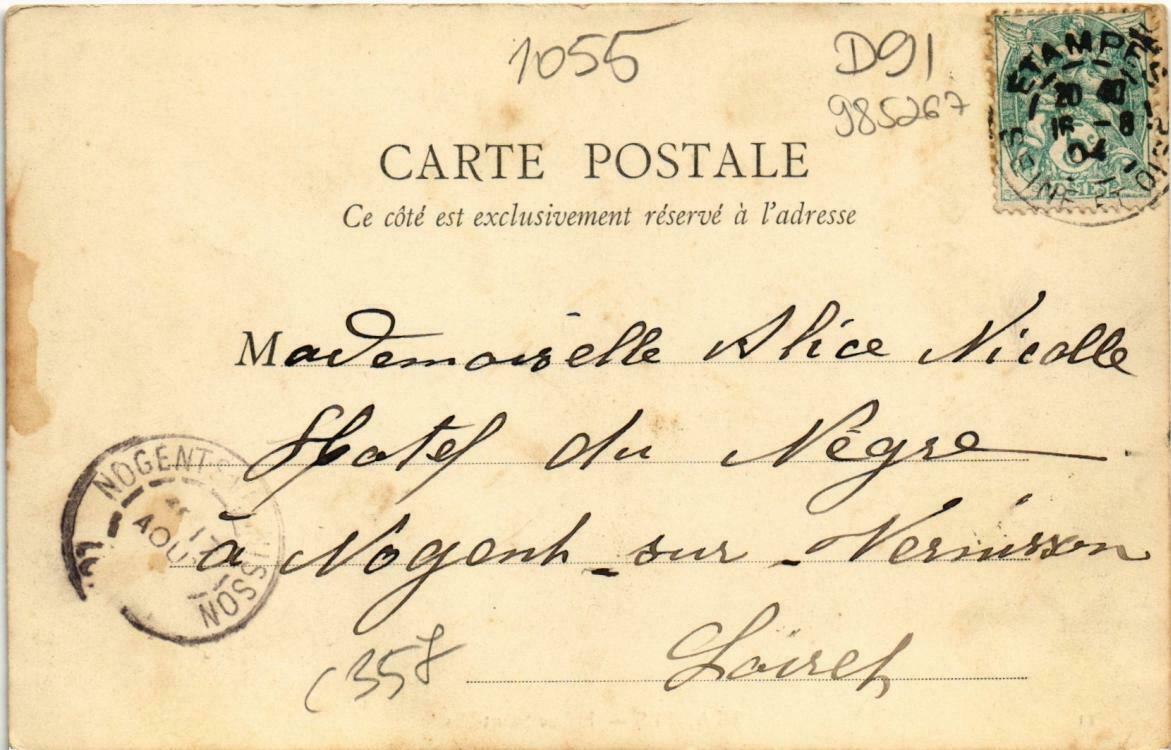 1055
D91
985267
ETAMPES
20 40
16 -8
04
SEINE ET OISE
CARTE POSTALE
Ce côté est exclusivement réservé à l'adresse
Mademoiselle Alice Nicolle
Hotel du Nègre
à Nogent-sur-Vernisson
Loiret
NOGENT
17
AOU
ISSON
C35f